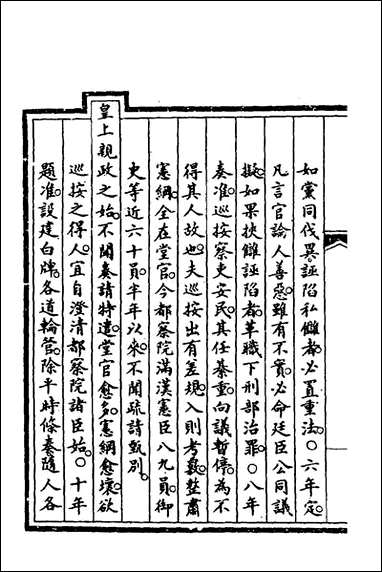 如黨同伐異誣陷私讎者必置重法○六年定
凡言官論人善惡雖有不實必命廷臣公同議
擬如果挾讎誣陷者革職下刑部治罪○八年
奏准巡按察吏安民其任綦重向議暫停為不
得其人故也夫巡按出有差規入則考覈整肅
憲綱全在堂官今都察院滿漢憲臣八九員御
史等近六十員半年以來不聞疏請甄別
皇上親政之始不聞奏請特遣堂官愈多憲綱愈壞欲
巡按之得人宜自澄清都察院諸臣始○十年
題准設建白牌各道輪管除平時條奏隨人各